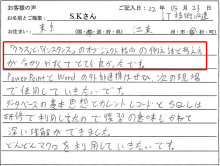 お客様の声
ご記入日：23年05月21日
お名前とご職業：S.Kさん
IT技術派遣
東京
江東
"クラス"と"インスタンス"のオブジェクト指向の例え話と考え方
が分かりやすくてとても良かったです。
PowerPointとWordの外部連携もぜひ次の現場
で使用していきたいです。
データベースの基本思想とカレントレコードとうんぬんは
研修で利用したので復習の意味もこめて
深い理解ができました。
どんどんマクロを利用していきたいです。